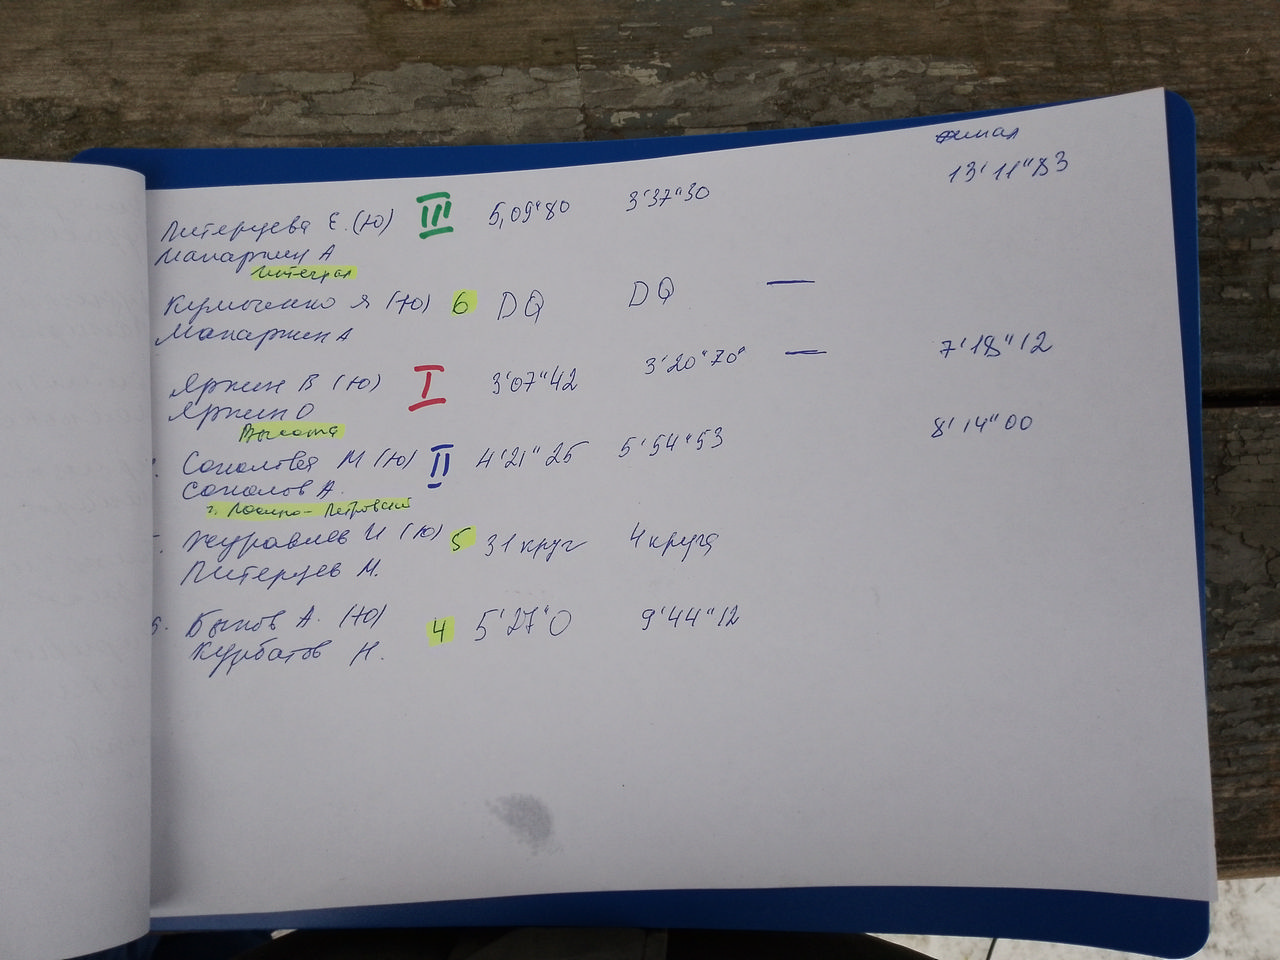 финал
Питерцева Е. (Ю) III 5,09"80 3'37"30 13'11"83
Макаркин А
Интеграл
(Ю) 6 DQ DQ —
Макаркин А
Яркин В (Ю) I 3'07"42 3'20"70" — 7'18"12
Яркин О
Высота
Соколова М (Ю) II 4'21"25 5'54"53 8'14"00
Соколов А.
г. Лосино-Петровский
Журавлев И (Ю) 5 31 круг 4 круга
Питерцев М.
Быков А. (Ю) 4 5'27"0 9'44"12
Курбатов Н.